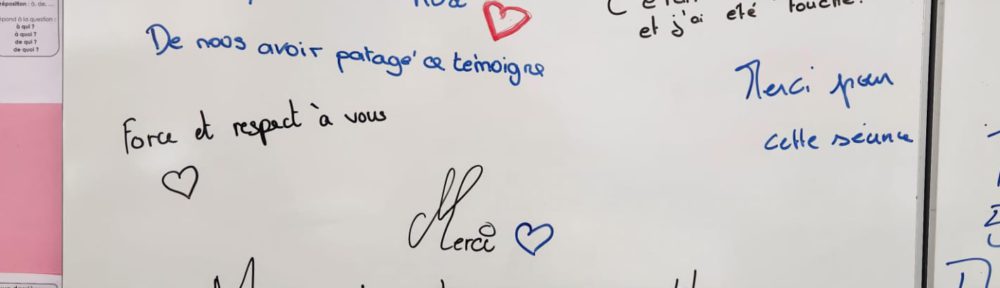 réposition : à, de, ...
pond à la question :
à qui ?
à quoi ?
de qui ?
de quoi ?
et j'ai été touché.
De nous avoir patagé ce temoigne
Merci pour
cette séance
Force et respect à vous
Merci